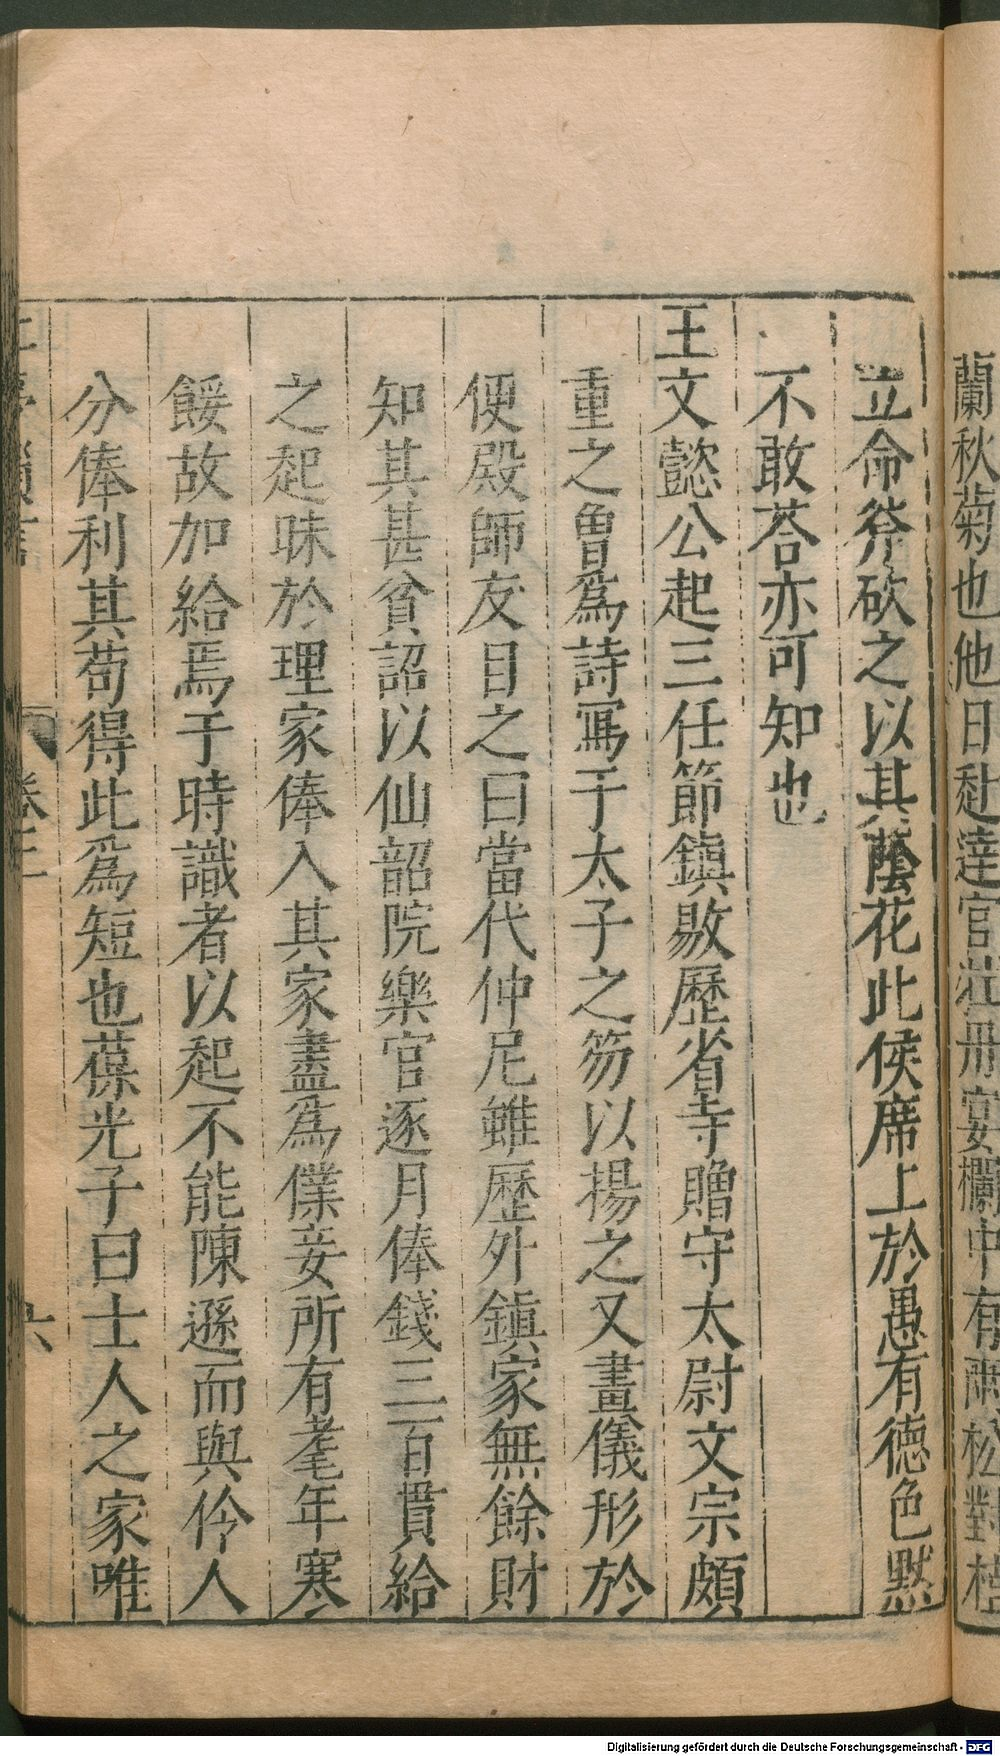 蘭秋菊也他日赴達官牡丹宴欄中有兩松對植
立命斧砍之以其蔭花此侯席上於愚有德色黙
不敢荅亦可知也
王文懿公起三任節鎮敭歷省寺贈守太尉文宗頗
重之曾爲詩寫于太子之笏以揚之又畫儀形於
便殿師友目之曰當代仲尼雖歷外鎮家無餘財
知其甚貧詔以仙韶院樂官逐月俸錢三百貫給
之起昧於理家俸入其家盡爲僕妾所有耄年寒
餒故加給焉于時識者以起不能陳遜而與伶人
分俸利其苟得此爲短也葆光子曰士人之家唯
卷三
六
Digitalisierung gefördert durch die Deutsche Forschungsgemeinschaft - DFG